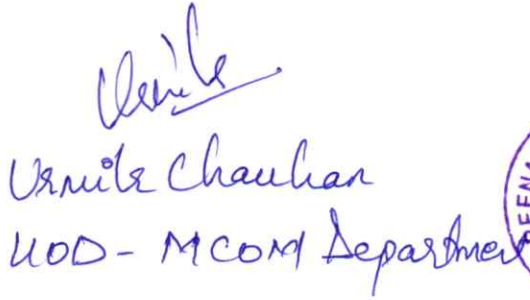 Urmila
Urmila Chauhan
HOD - MCOM Department
EENA